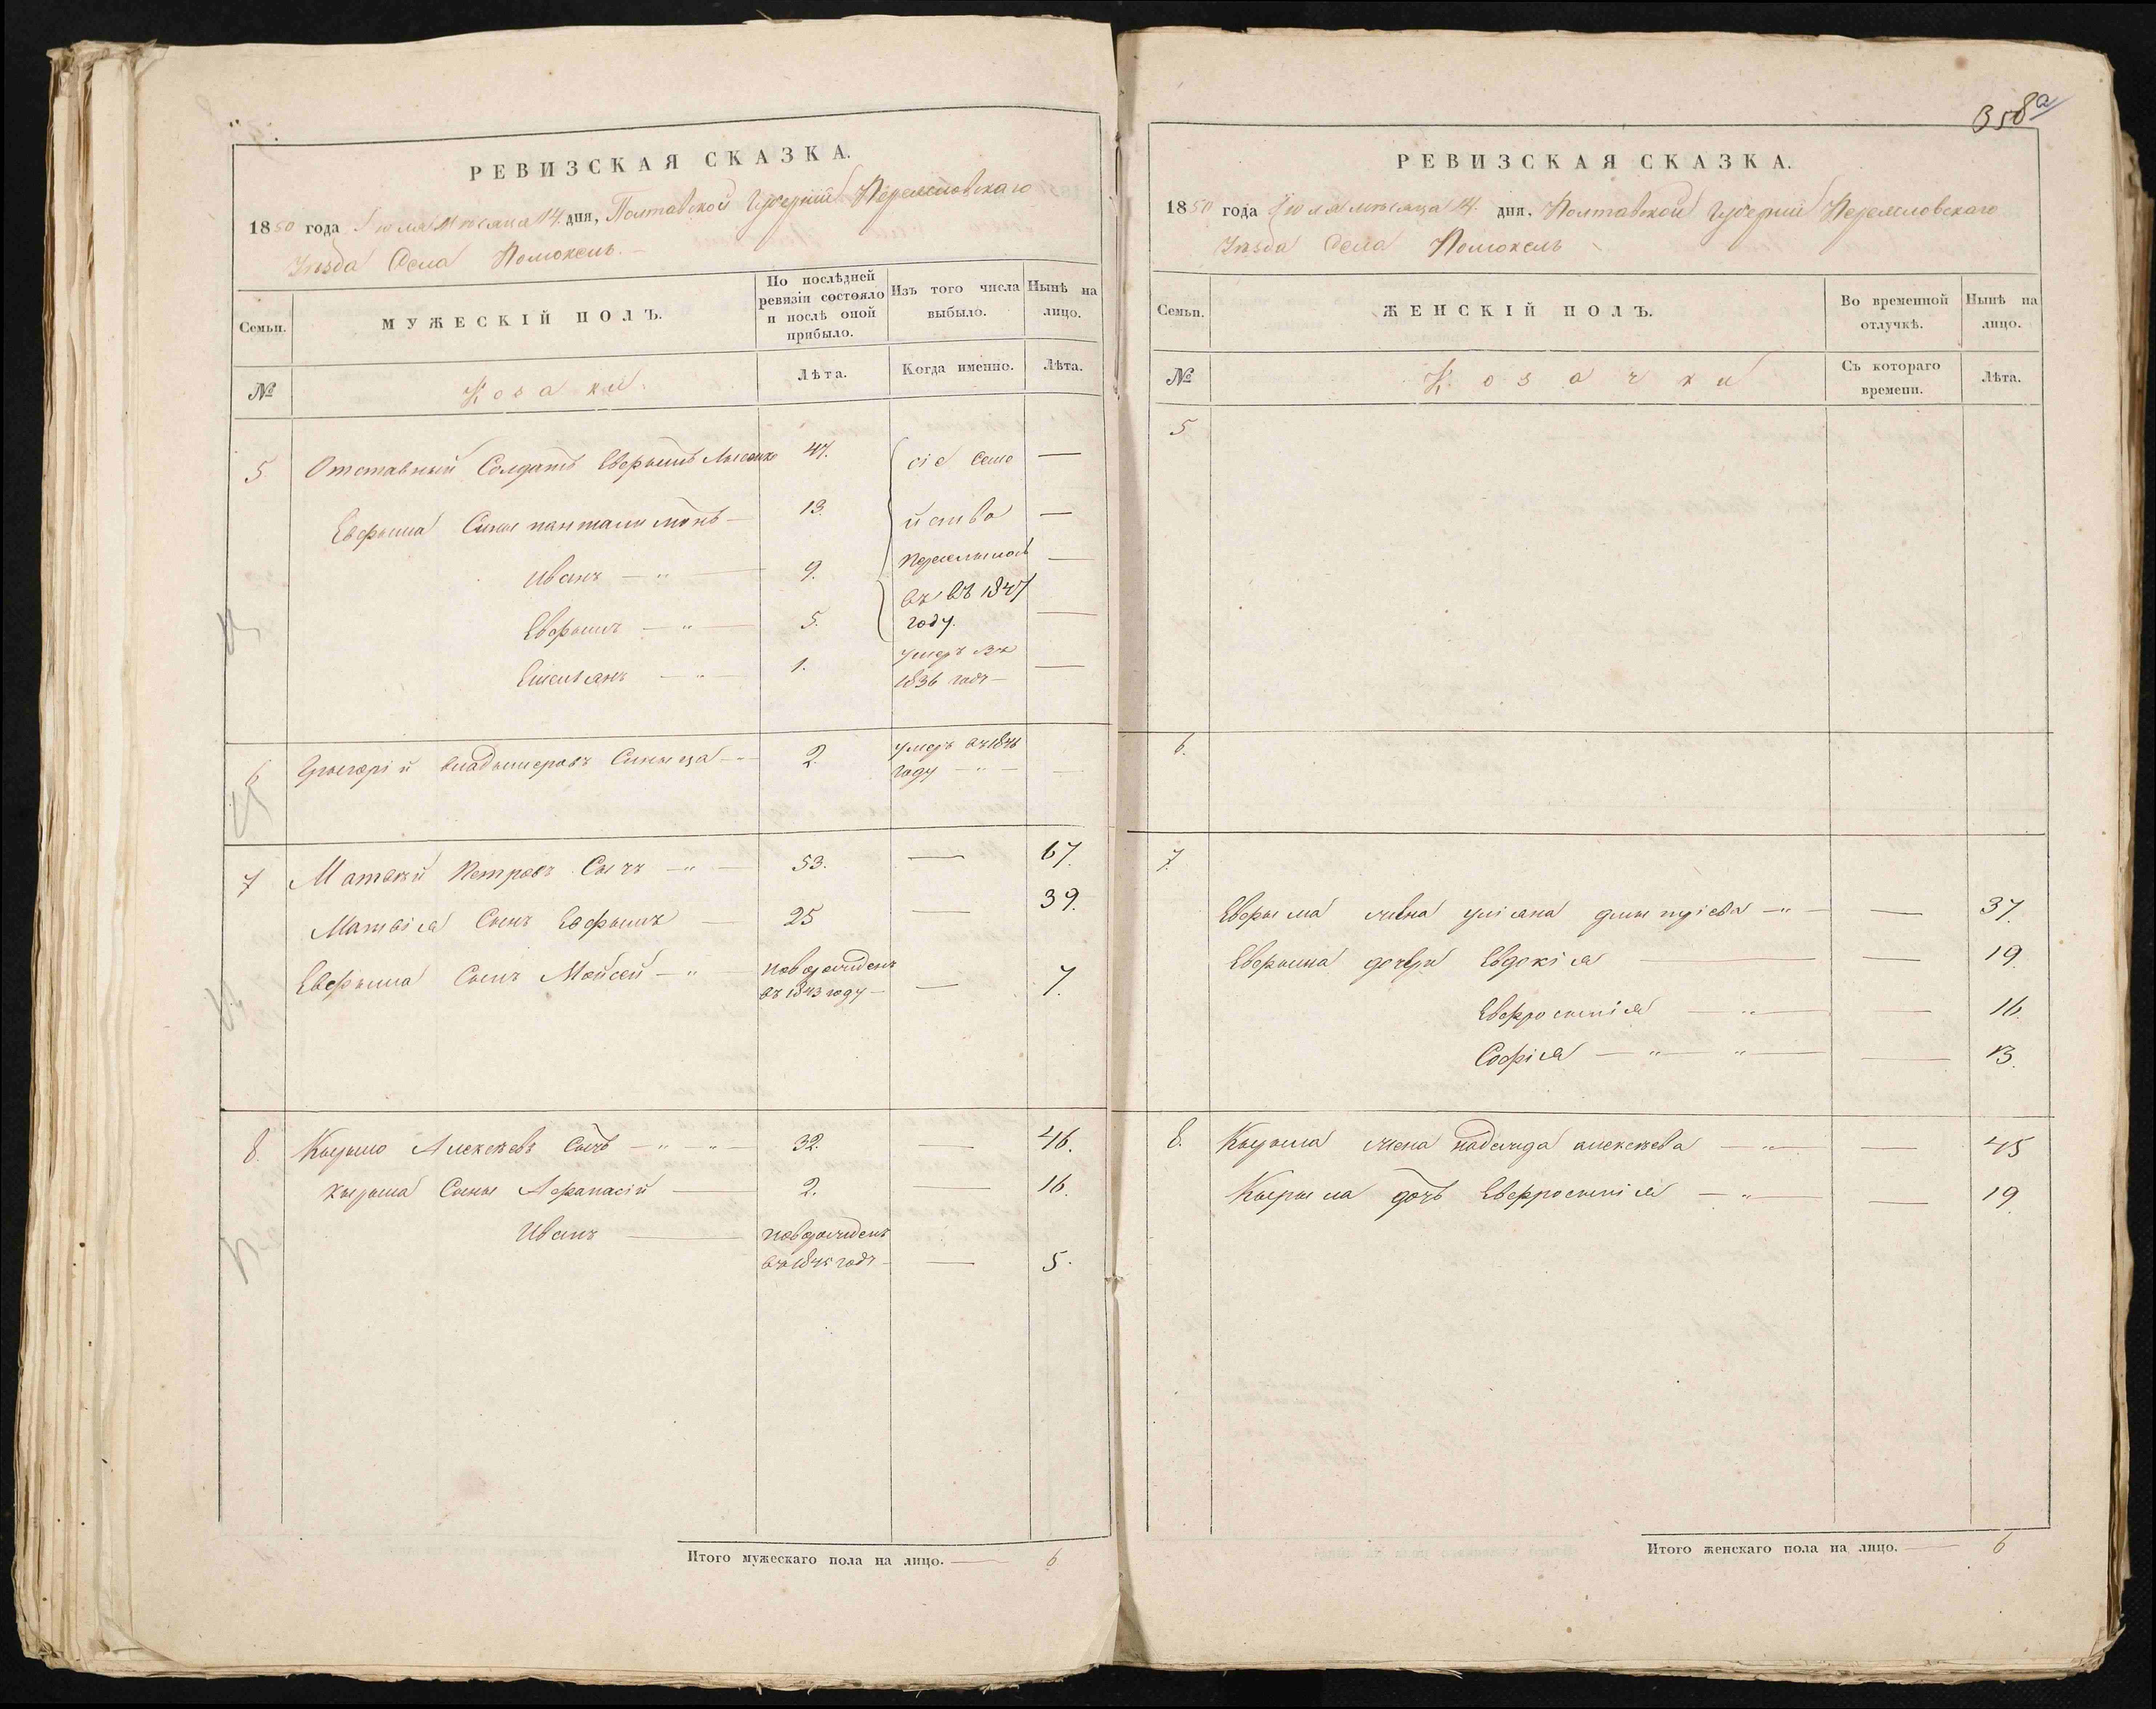 РЕВИЗСКАЯ СКАЗКА.
1850 года Іюля Мѣсяца 14. дня, Полтавской Губерніи Переяславскаго
Уѣзда Села Помоклъ.
Семьи.
МУЖЕСКІЙ ПОЛЪ.
По послѣдней
ревизіи состояло
и послѣ оной
прибыло.
Изъ того числа
выбыло.
Нынѣ на
лицо.
№
Козаки
Лѣта.
Когда именно.
Лѣта.
5 Отставный Солдатъ 47. сіе Семе —
Ефрыма Сины пантелимонъ — 13. йство —
Иванъ — 9. —
въ въ 1847
Ефрымъ — 5. году. —
Емельянъ — 1. умеръ въ —
1836 годѣ —
6 Грыгорій Владымеровъ Сыныця 2. умеръ въ
году — —
7 Матвей Петровъ Сычъ — 53. — 67.
Матвія Сынъ Ефрымъ — 25 — 39.
Ефрыма Сынъ Мойсей — новорожденъ
въ 1843 году — — 7.
8. Кырыло Алексѣевъ Сычъ — 32. — 46.
Кырыла Сыны Афанасій — 2. — 16.
Иванъ — новорожденъ
въ 1845 годѣ — — 5.
Итого мужескаго пола на лицо. — 6
358а
РЕВИЗСКАЯ СКАЗКА.
1850 года Іюля мѣсяца 14. дня, Полтавской Губерніи Переяславскаго
Уѣзда Села Помоклъ
Семьи.
ЖЕНСКІЙ ПОЛЪ.
Во временной
отлучкѣ.
Нынѣ на
лицо.
№
Козачки
Съ котораго
времени.
Лѣта.
5
6.
7.
Ефрыма жена уліяна — — 37.
Ефрыма дочери Евдокія — — 19.
Евфросинія — — 16.
Софія — — 13.
8. Кырыла жена надежда алексѣева — — 45
Кырыла дочь Евфросинія — — 19.
Итого женскаго пола на лицо. — 6